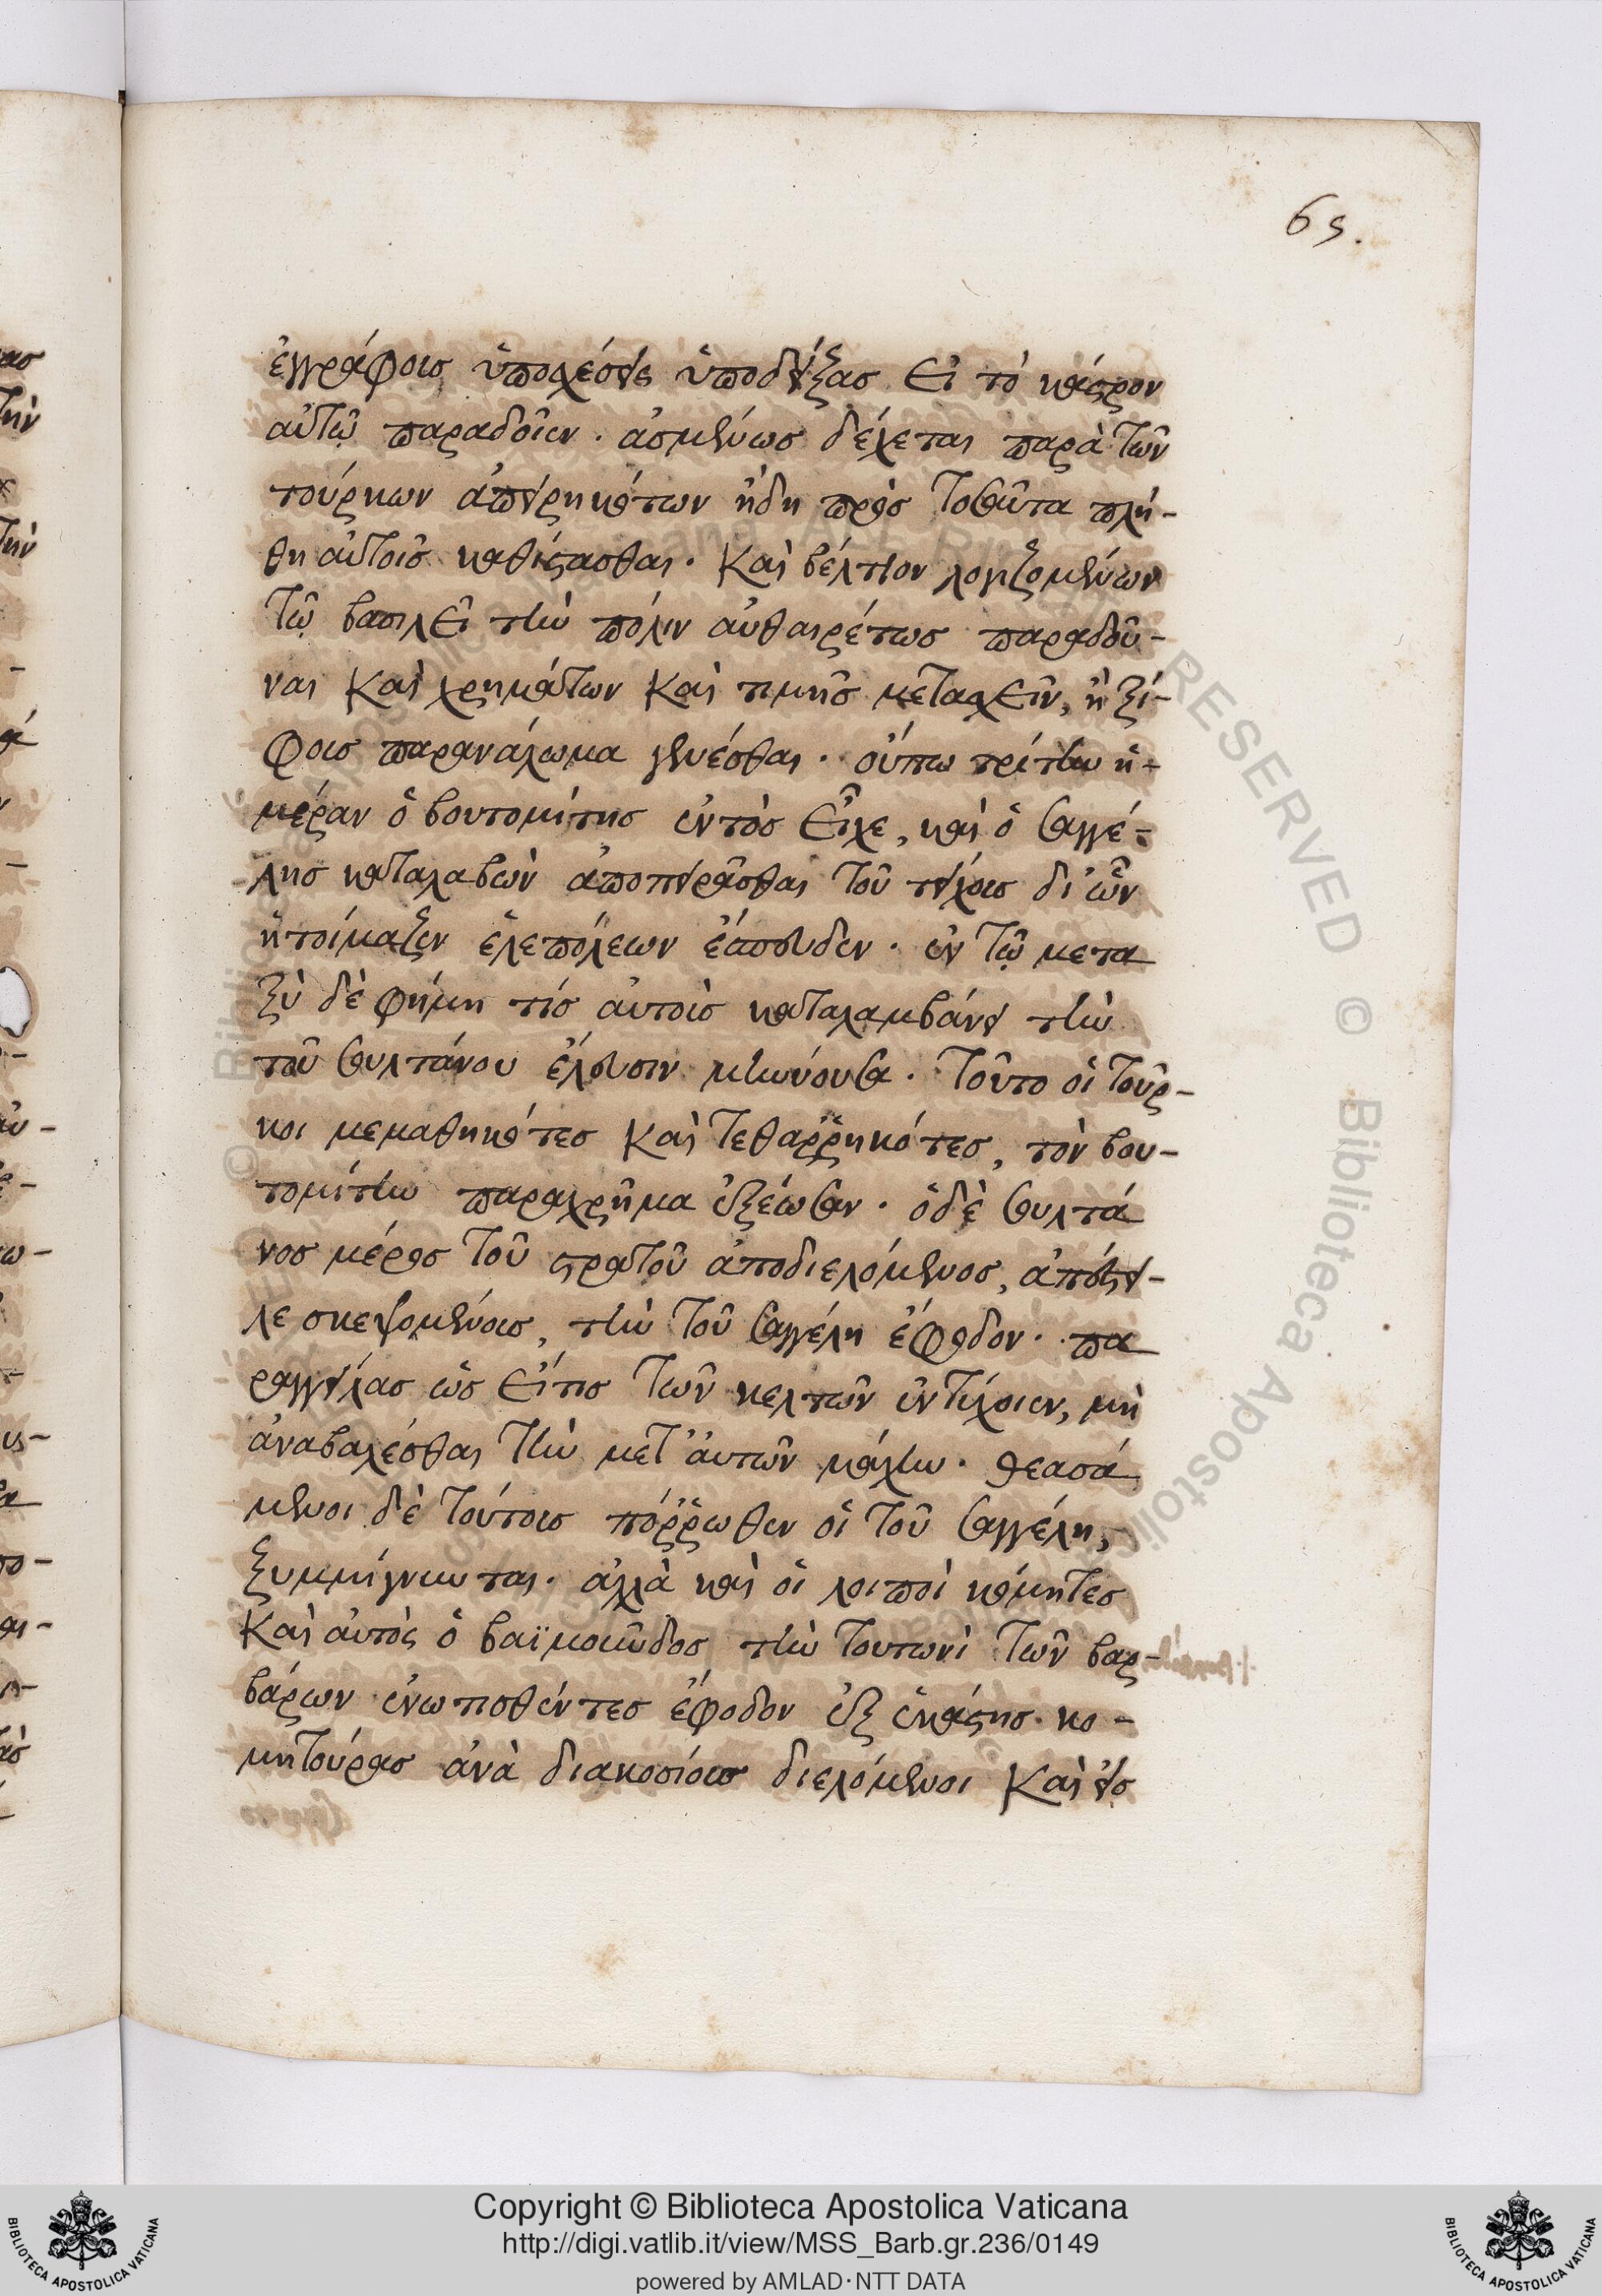 65.
ἐγγράφοις ὑποσχέσεις ὑποδείξας εἰ τὸ κάστρον
αὐτῷ παραδοῖεν. ἀσμένως δέχεται παρὰ τῶν
τούρκων ἀπειρηκότων ἤδη πρὸς τοσαῦτα πλή-
θη αὐτοῖς καθίστασθαι. Καὶ βέλτιον λογιζομένων
τῷ βασιλεῖ τὴν πόλιν αὐθαιρέτως παραδοῦ-
ναι καὶ χρημάτων καὶ τιμῆς μετασχεῖν, ἢ ξί-
φους παρανάλωμα γενέσθαι. οὔπω τρίτην ἡ-
μέραν ὁ βουτομίτης ἐντὸς εἶχε, καὶ ὁ σαγγέ-
λης καταλαβὼν ἀποπειρᾶσθαι τοῦ τείχους δι' ὧν
ἡτοίμαζεν ἑλεπόλεων ἔσπευδεν. ἐν τῷ μετα
ξὺ δὲ φήμη τίς αὐτοὺς καταλαμβάνει τὴν
τοῦ σουλτάνου ἔλευσιν μηνύουσα. Τοῦτο οἱ τοῦρ-
κοι μεμαθηκότες καὶ τεθαῤῥηκότες, τὸν βου-
τομίτην παραχρῆμα ἐξέωσαν. ὁ δὲ σουλτά
νος μέρος τοῦ στρατοῦ ἀποδιελόμενος, ἀπέστει-
λε σκεψομένους, τὴν τοῦ σαγγέλη ἔφοδον. πα
ραγγείλας ὡς εἴ τις τῶν κελτῶν ἐντύχοιεν, μὴ
ἀναβαλέσθαι τὴν μετ' αὐτῶν μάχην. θεασά
μενοι δὲ τούτους πόῤῥωθεν οἱ τοῦ σαγγέλη,
ξυμμίγνυνται. ἀλλὰ καὶ οἱ λοιποὶ κόμητες
καὶ αὐτὸς ὁ βαϊμοῦνδος τὴν τουτωνὶ τῶν βαρ-
βάρων ἐνωτισθέντες ἔφοδον ἐξ ἑκάστης κο-
μητούρας ἀνὰ διακοσίους διελόμενοι καὶ εἰς
Copyright © Biblioteca Apostolica Vaticana
http://digi.vatlib.it/view/MSS_Barb.gr.236/0149
powered by AMLAD·NTT DATA
BIBLIOTECA APOSTOLICA VATICANA
BIBLIOTECA APOSTOLICA VATICANA